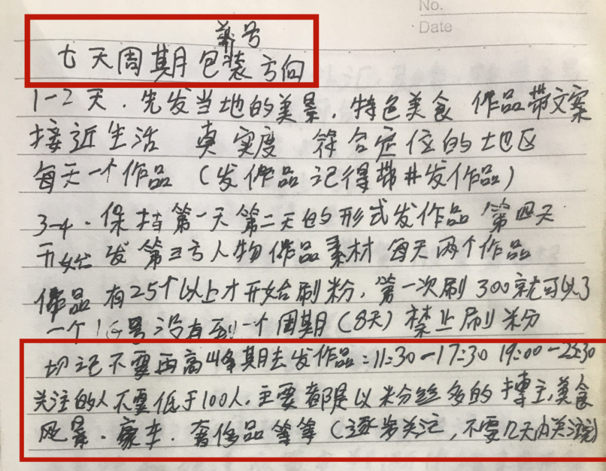 No.
Date
养号
七天周期包装方向
1-2天.先发当地的美景,特色美食 作品带文案
接近生活 真实度 符合定位的地区
每天一个作品(发作品记得带井发作品)
3-4.保持第一天第二天的形式发作品 第四天
开始发第三方人物作品素材 每天两个作品
作品有25个以上才开始刷粉,第一次刷300就可以了
一个 号没有到一个周期(8天)禁止刷粉
切记不要再高峰期去发作品:11:30-17:30 19:00-23:30
关注的人不要低于100人.主要都是以粉丝多的博主,美食
风景.豪车.奢侈品等等(逐步关注,不要几天内关注完)